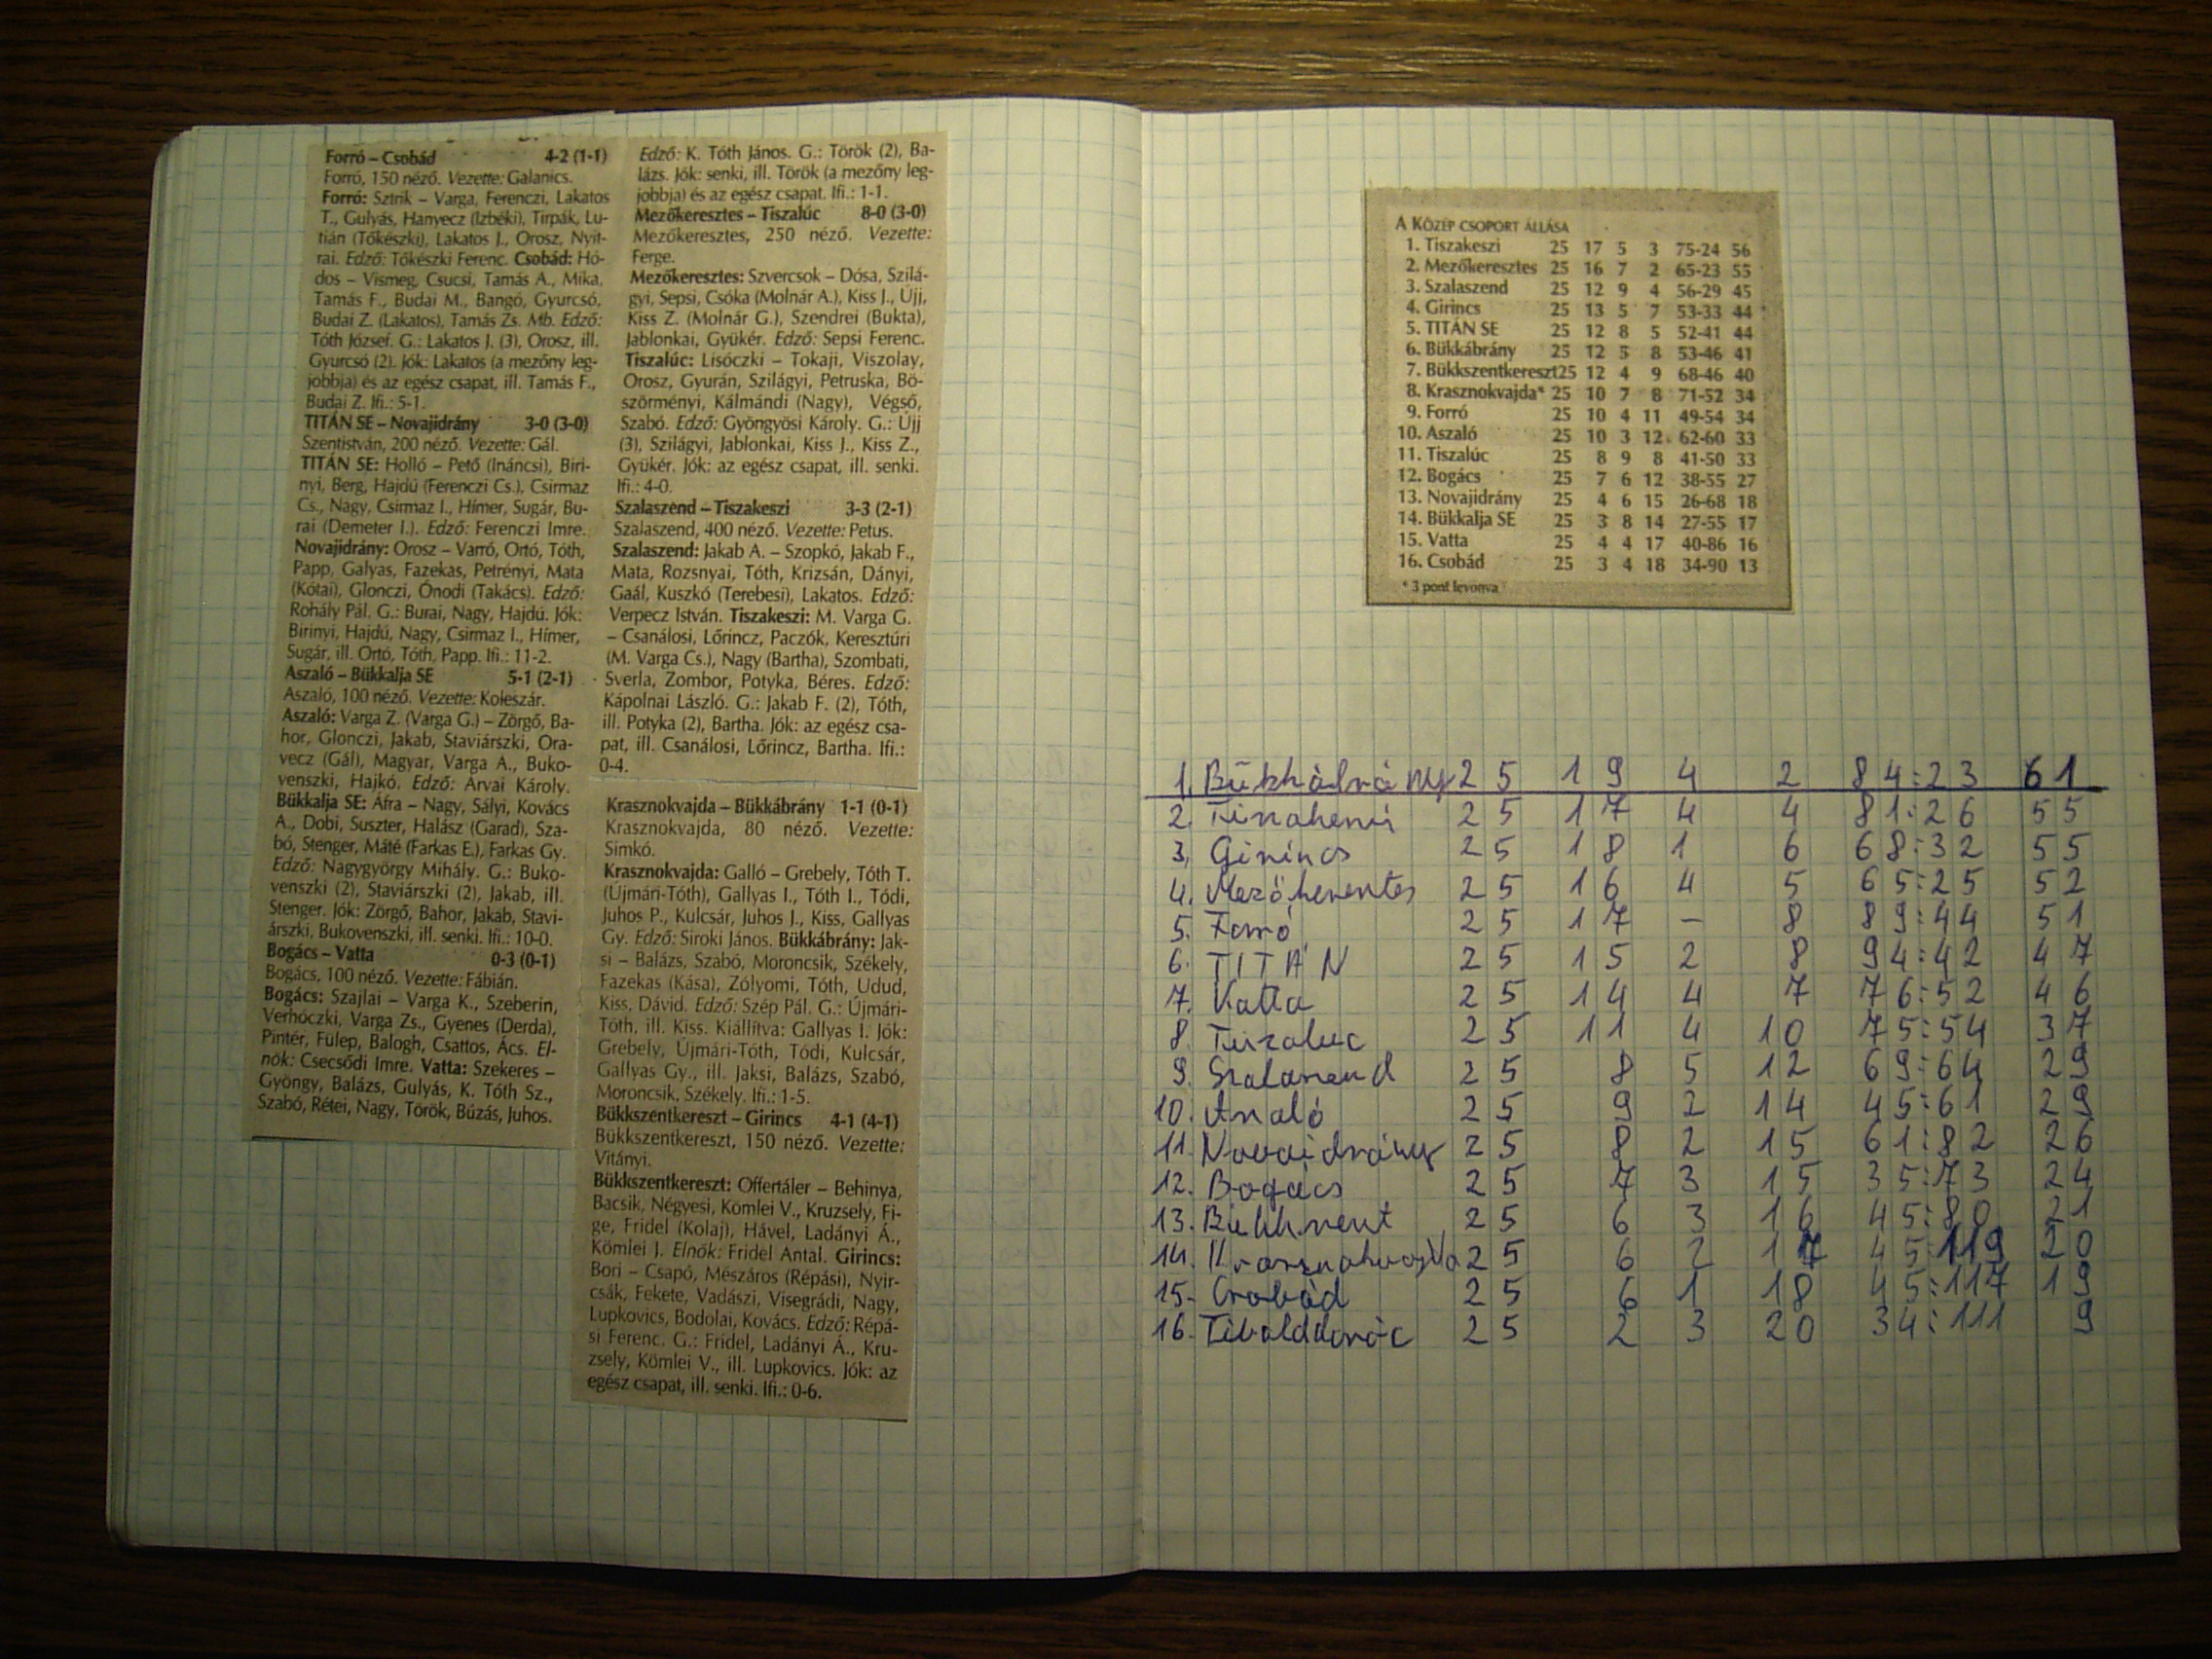 Forró – Csobád 4-2 (1-1)
Forró, 150 néző. Vezette: Galanics.
Forró: Sztrik – Varga, Ferenczi, Lakatos
T., Gulyás, Hanyecz (Izbéki), Tirpák, Lu-
tián (Tőkészki), Lakatos J., Orosz, Nyit-
rai. Edző: Tőkészki Ferenc. Csobád: Hó-
dos – Vismeg, Csucsi, Tamás A., Mika,
Tamás F., Budai M., Bangó, Gyurcsó,
Budai Z. (Lakatos), Tamás Zs. Mb. Edző:
Tóth József. G.: Lakatos J. (3), Orosz, ill.
Gyurcsó (2). Jók: Lakatos (a mezőny leg-
jobbja) és az egész csapat, ill. Tamás F.,
Budai Z. Ifi.: 5-1.
TITÁN SE – Novajidrány 3-0 (3-0)
Szentistván, 200 néző. Vezette: Gál.
TITÁN SE: Holló – Pető (Ináncsi), Biri-
nyi, Berg, Hajdú (Ferenczi Cs.), Csirmaz
Cs., Nagy, Csirmaz I., Hímer, Sugár, Bu-
rai (Demeter I.). Edző: Ferenczi Imre.
Novajidrány: Orosz – Varró, Ortó, Tóth,
Papp, Galyas, Fazekas, Petrényi, Mata
(Kótai), Glonczi, Ónodi (Takács). Edző:
Rohály Pál. G.: Burai, Nagy, Hajdú. Jók:
Birinyi, Hajdú, Nagy, Csirmaz I., Hímer,
Sugár, ill. Ortó, Tóth, Papp. Ifi.: 11-2.
Aszaló – Bükkalja SE 5-1 (2-1)
Aszaló, 100 néző. Vezette: Koleszár.
Aszaló: Varga Z. (Varga G.) – Zörgő, Ba-
hor, Glonczi, Jakab, Staviárszki, Ora-
vecz (Gál), Magyar, Varga A., Buko-
venszki, Hajkó. Edző: Árvai Károly.
Bükkalja SE: Áfra – Nagy, Sályi, Kovács
A., Dobi, Suszter, Halász (Garad), Sza-
bó, Stenger, Máté (Farkas E.), Farkas Gy.
Edző: Nagygyörgy Mihály. G.: Buko-
venszki (2), Staviárszki (2), Jakab, ill.
Stenger. Jók: Zörgő, Bahor, Jakab, Stavi-
árszki, Bukovenszki, ill. senki. Ifi.: 10-0.
Bogács – Vatta 0-3 (0-1)
Bogács, 100 néző. Vezette: Fábián.
Bogács: Szajlai – Varga K., Szeberin,
Verhóczki, Varga Zs., Gyenes (Derda),
Pintér, Fülep, Balogh, Csattos, Ács. El-
nök: Csecsődi Imre. Vatta: Szekeres –
Gyöngy, Balázs, Gulyás, K. Tóth Sz.,
Szabó, Rétei, Nagy, Török, Búzás, Juhos.
Edző: K. Tóth János. G.: Török (2), Ba-
lázs. Jók: senki, ill. Török (a mezőny leg-
jobbja) és az egész csapat. Ifi.: 1-1.
Mezőkeresztes – Tiszalúc 8-0 (3-0)
Mezőkeresztes, 250 néző. Vezette:
Ferge.
Mezőkeresztes: Szvercsok – Dósa, Szilá-
gyi, Sepsi, Csóka (Molnár A.), Kiss J., Újj,
Kiss Z. (Molnár G.), Szendrei (Bukta),
Jablonkai, Gyükér. Edző: Sepsi Ferenc.
Tiszalúc: Lisóczki – Tokaji, Viszolay,
Orosz, Gyurán, Szilágyi, Petruska, Bö-
szörményi, Kálmándi (Nagy), Végső,
Szabó. Edző: Gyöngyösi Károly. G.: Újj
(3), Szilágyi, Jablonkai, Kiss J., Kiss Z.,
Gyükér. Jók: az egész csapat, ill. senki.
Ifi.: 4-0.
Szalaszend – Tiszakeszi 3-3 (2-1)
Szalaszend, 400 néző. Vezette: Petus.
Szalaszend: Jakab A. – Szopkó, Jakab F.,
Mata, Rozsnyai, Tóth, Krizsán, Dányi,
Gaál, Kuszkó (Terebesi), Lakatos. Edző:
Verpecz István. Tiszakeszi: M. Varga G.
– Csanálosi, Lőrincz, Paczók, Keresztúri
(M. Varga Cs.), Nagy (Bartha), Szombati,
Sverla, Zombor, Potyka, Béres. Edző:
Kápolnai László. G.: Jakab F. (2), Tóth,
ill. Potyka (2), Bartha. Jók: az egész csa-
pat, ill. Csanálosi, Lőrincz, Bartha. Ifi.:
0-4.
Krasznokvajda – Bükkábrány 1-1 (0-1)
Krasznokvajda, 80 néző. Vezette:
Simkó.
Krasznokvajda: Galló – Grebely, Tóth T.
(Újmári-Tóth), Gallyas I., Tóth I., Tódi,
Juhos P., Kulcsár, Juhos J., Kiss, Gallyas
Gy. Edző: Siroki János. Bükkábrány: Jak-
si – Balázs, Szabó, Moroncsik, Székely,
Fazekas (Kása), Zólyomi, Tóth, Udud,
Kiss, Dávid. Edző: Szép Pál. G.: Újmári-
Tóth, ill. Kiss. Kiállítva: Gallyas I. Jók:
Grebely, Újmári-Tóth, Tódi, Kulcsár,
Gallyas Gy., ill. Jaksi, Balázs, Szabó,
Moroncsik, Székely. Ifi.: 1-5.
Bükkszentkereszt – Girincs 4-1 (4-1)
Bükkszentkereszt, 150 néző. Vezette:
Vitányi.
Bükkszentkereszt: Offertáler – Behinya,
Bacsik, Négyesi, Kömlei V., Kruzsely, Fi-
ge, Fridel (Kolaj), Hável, Ladányi Á.,
Kömlei J. Elnök: Fridel Antal. Girincs:
Bori – Csapó, Mészáros (Répási), Nyir-
csák, Fekete, Vadászi, Visegrádi, Nagy,
Lupkovics, Bodolai, Kovács. Edző: Répá-
si Ferenc. G.: Fridel, Ladányi Á., Kru-
zsely, Kömlei V., ill. Lupkovics. Jók: az
egész csapat, ill. senki. Ifi.: 0-6.
A KÖZÉP CSOPORT ÁLLÁSA
1. Tiszakeszi 25 17 5 3 75-24 56
2. Mezőkeresztes 25 16 7 2 65-23 55
3. Szalaszend 25 12 9 4 56-29 45
4. Girincs 25 13 5 7 53-33 44
5. TITÁN SE 25 12 8 5 52-41 44
6. Bükkábrány 25 12 5 8 53-46 41
7. Bükkszentkereszt 25 12 4 9 68-46 40
8. Krasznokvajda* 25 10 7 8 71-52 34
9. Forró 25 10 4 11 49-54 34
10. Aszaló 25 10 3 12 62-60 33
11. Tiszalúc 25 8 9 8 41-50 33
12. Bogács 25 7 6 12 38-55 27
13. Novajidrány 25 4 6 15 26-68 18
14. Bükkalja SE 25 3 8 14 27-55 17
15. Vatta 25 4 4 17 40-86 16
16. Csobád 25 3 4 18 34-90 13
* 3 pont levonva
1. Bükkábrány 25 19 4 2 84:23 61
2. Tiszakeszi 25 17 4 4 81:26 55
3. Girincs 25 18 1 6 68:32 55
4. Mezőkeresztes 25 16 4 5 65:25 52
5. Forró 25 17 – 8 89:44 51
6. TITÁN 25 15 2 8 94:42 47
7. Vatta 25 14 4 7 76:52 46
8. Tiszaluc 25 11 4 10 75:54 37
9. Szalaszend 25 8 5 12 69:64 29
10. Aszaló 25 9 2 14 45:61 29
11. Novaidrány 25 8 2 15 61:82 26
12. Bogács 25 7 3 15 35:73 24
13. Bükkszent 25 6 3 16 45:80 21
14. Krasznokvajda 25 6 2 17 45:119 20
15. Csobád 25 6 1 18 45:117 19
16. Tibolddaróc 25 2 3 20 34:111 9